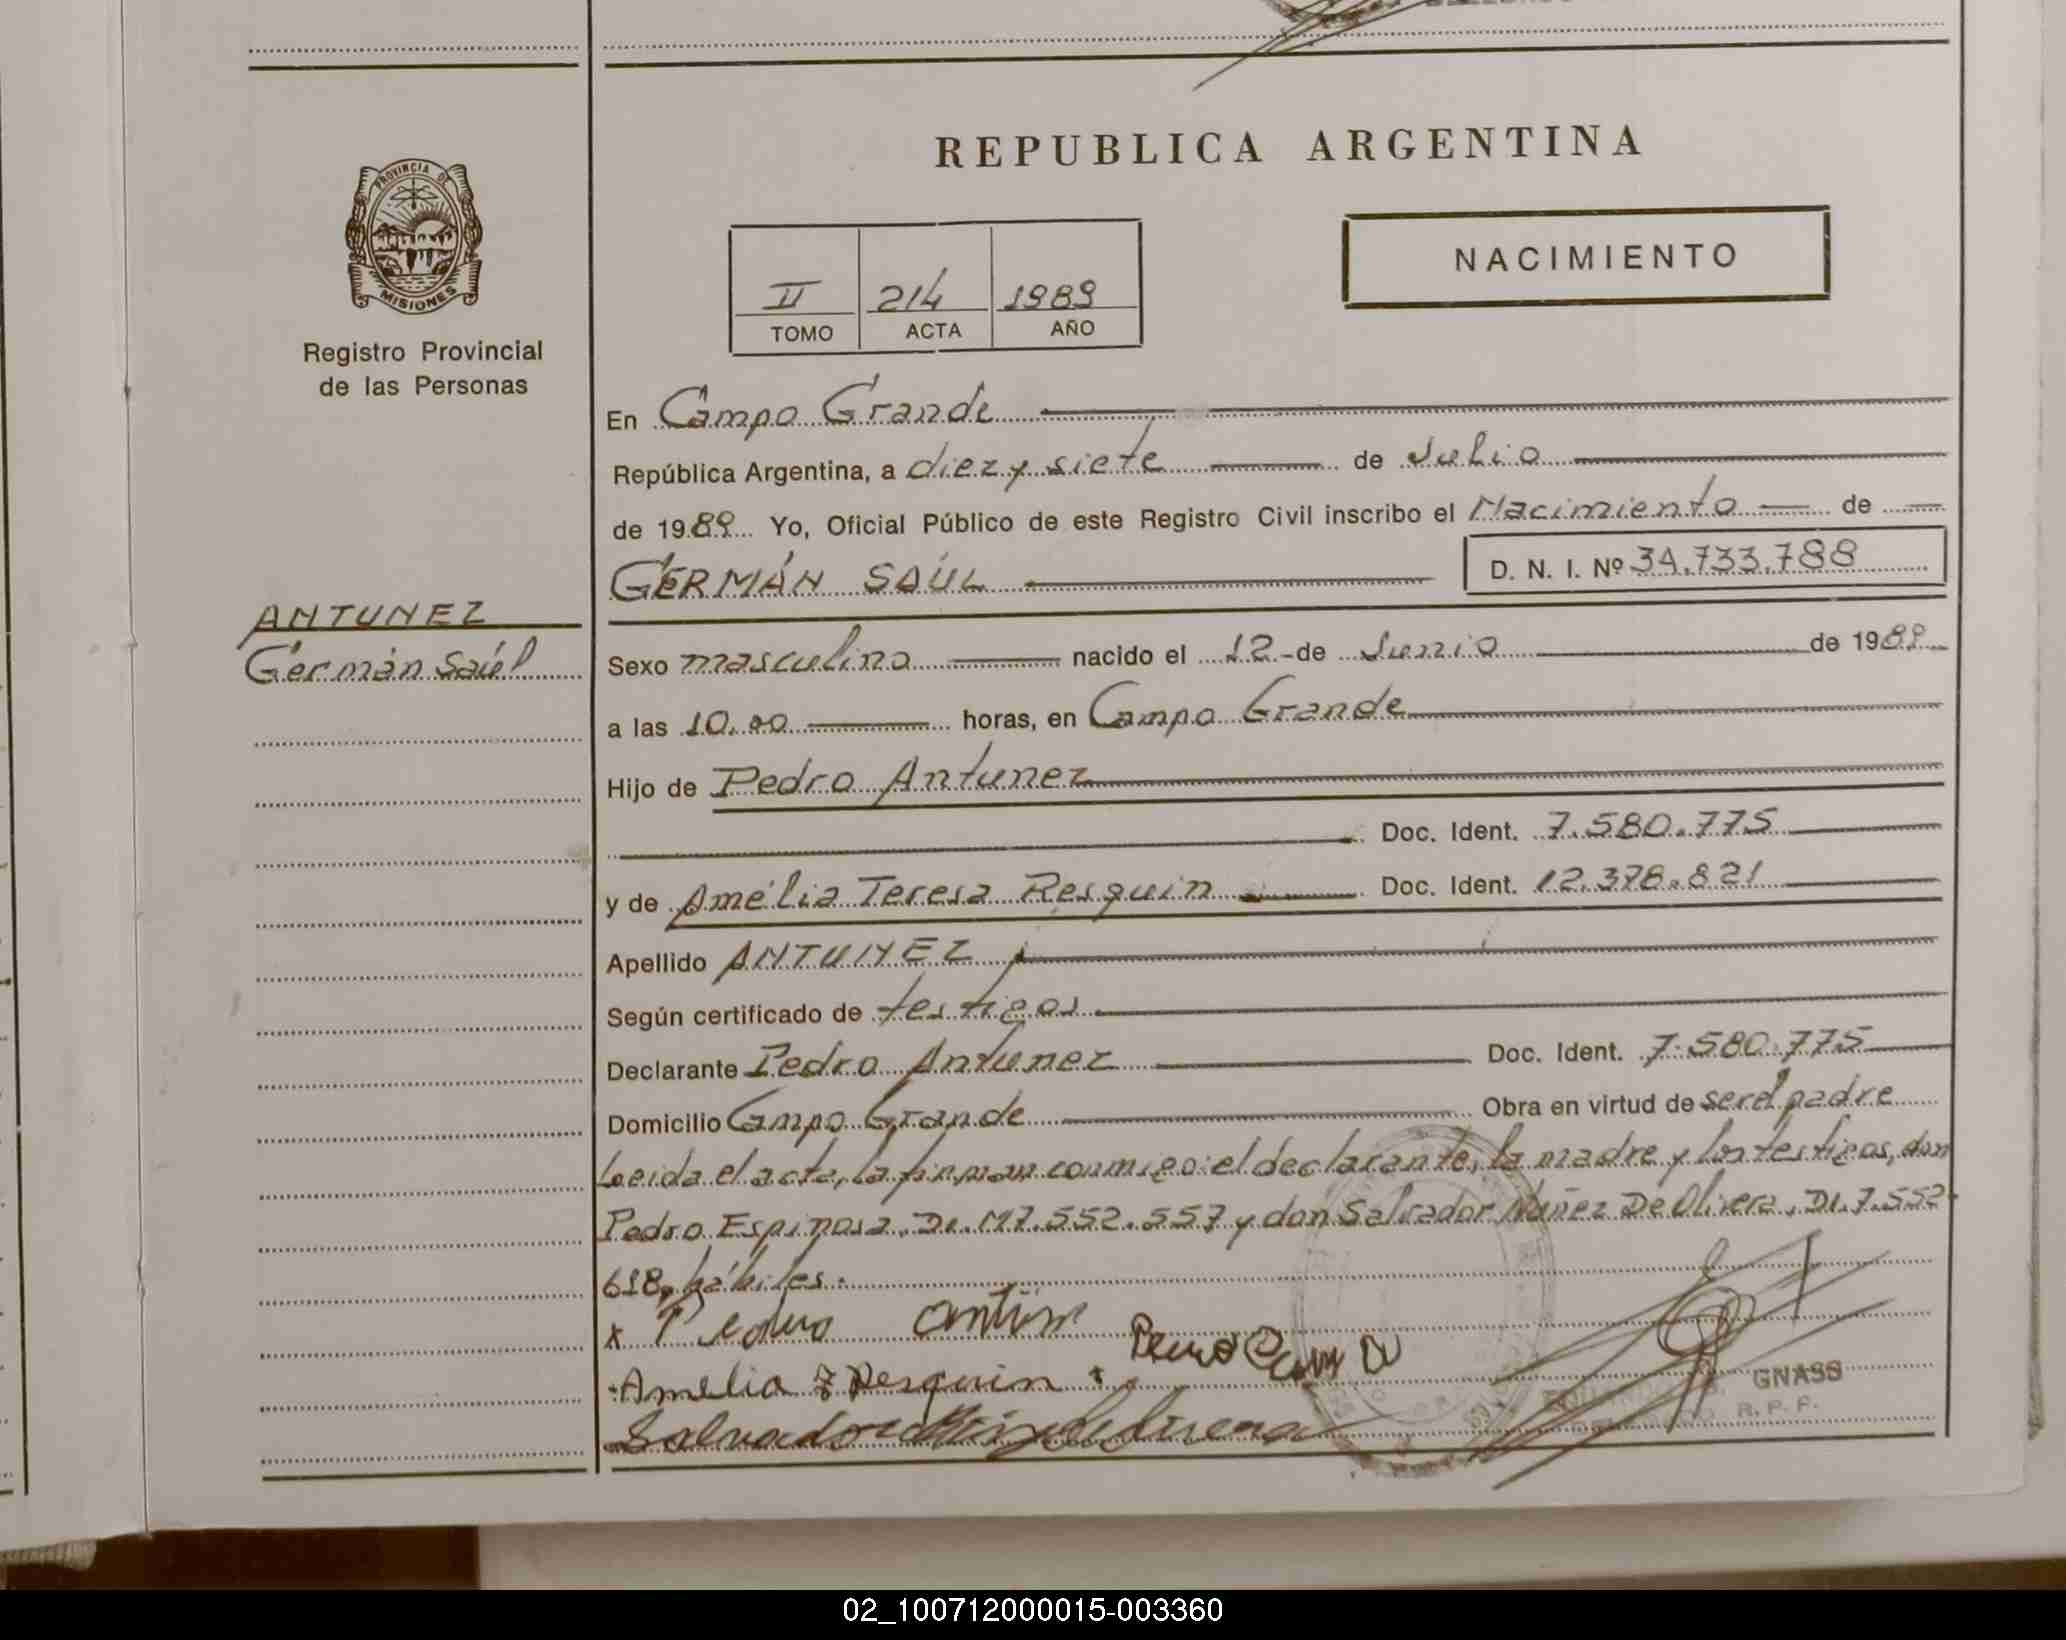 REPUBLICA ARGENTINA
PROVINCIA DE
MISIONES
Registro Provincial
de las Personas
NACIMIENTO
II 214 1989
TOMO ACTA AÑO
En Campo Grande
República Argentina, a diez y siete de Julio
de 1989 Yo, Oficial Público de este Registro Civil inscribo el Nacimiento de
GERMÁN SAÚL D. N. I. Nº 34.733.788
ANTUNEZ
Germán Saúl
Sexo masculino nacido el 12 - de Junio de 1989
a las 10.00 horas, en Campo Grande
Hijo de Pedro Antunez
Doc. Ident. 7.580.775
y de Amélia Teresa Resquin Doc. Ident. 12.378.821
Apellido ANTUNEZ
Según certificado de testigos
Declarante Pedro Antunez Doc. Ident. 7.580.775
Domicilio Campo Grande Obra en virtud de ser el padre
Leida el acta, la firman conmigo: el declarante, la madre y los testigos, don
Pedro Espinosa, DI. M7.552.557 y don Salvador Núñez De Olivera, DI. 7.552.
618, hábiles.
x Pedro
Amelia T Resquin
Salvador
GNASS
R. P. P.
02_100712000015-003360